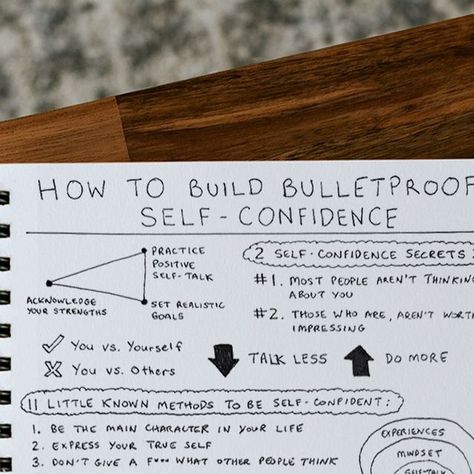 HOW TO BUILD BULLETPROOF
SELF-CONFIDENCE
PRACTICE
POSITIVE
SELF-TALK
ACKNOWLEDGE
YOUR STRENGTHS
SET REALISTIC
GOALS
2 SELF-CONFIDENCE SECRETS:
#1. MOST PEOPLE AREN'T THINKING
ABOUT YOU
#2. THOSE WHO ARE, AREN'T WORTH
IMPRESSING
You vs. Yourself
You vs. Others
TALK LESS
DO MORE
11 LITTLE KNOWN METHODS TO BE SELF-CONFIDENT:
1. BE THE MAIN CHARACTER IN YOUR LIFE
2. EXPRESS YOUR TRUE SELF
3. DON'T GIVE A F*** WHAT OTHER PEOPLE THINK
EXPERIENCES
MINDSET
SELF-TALK